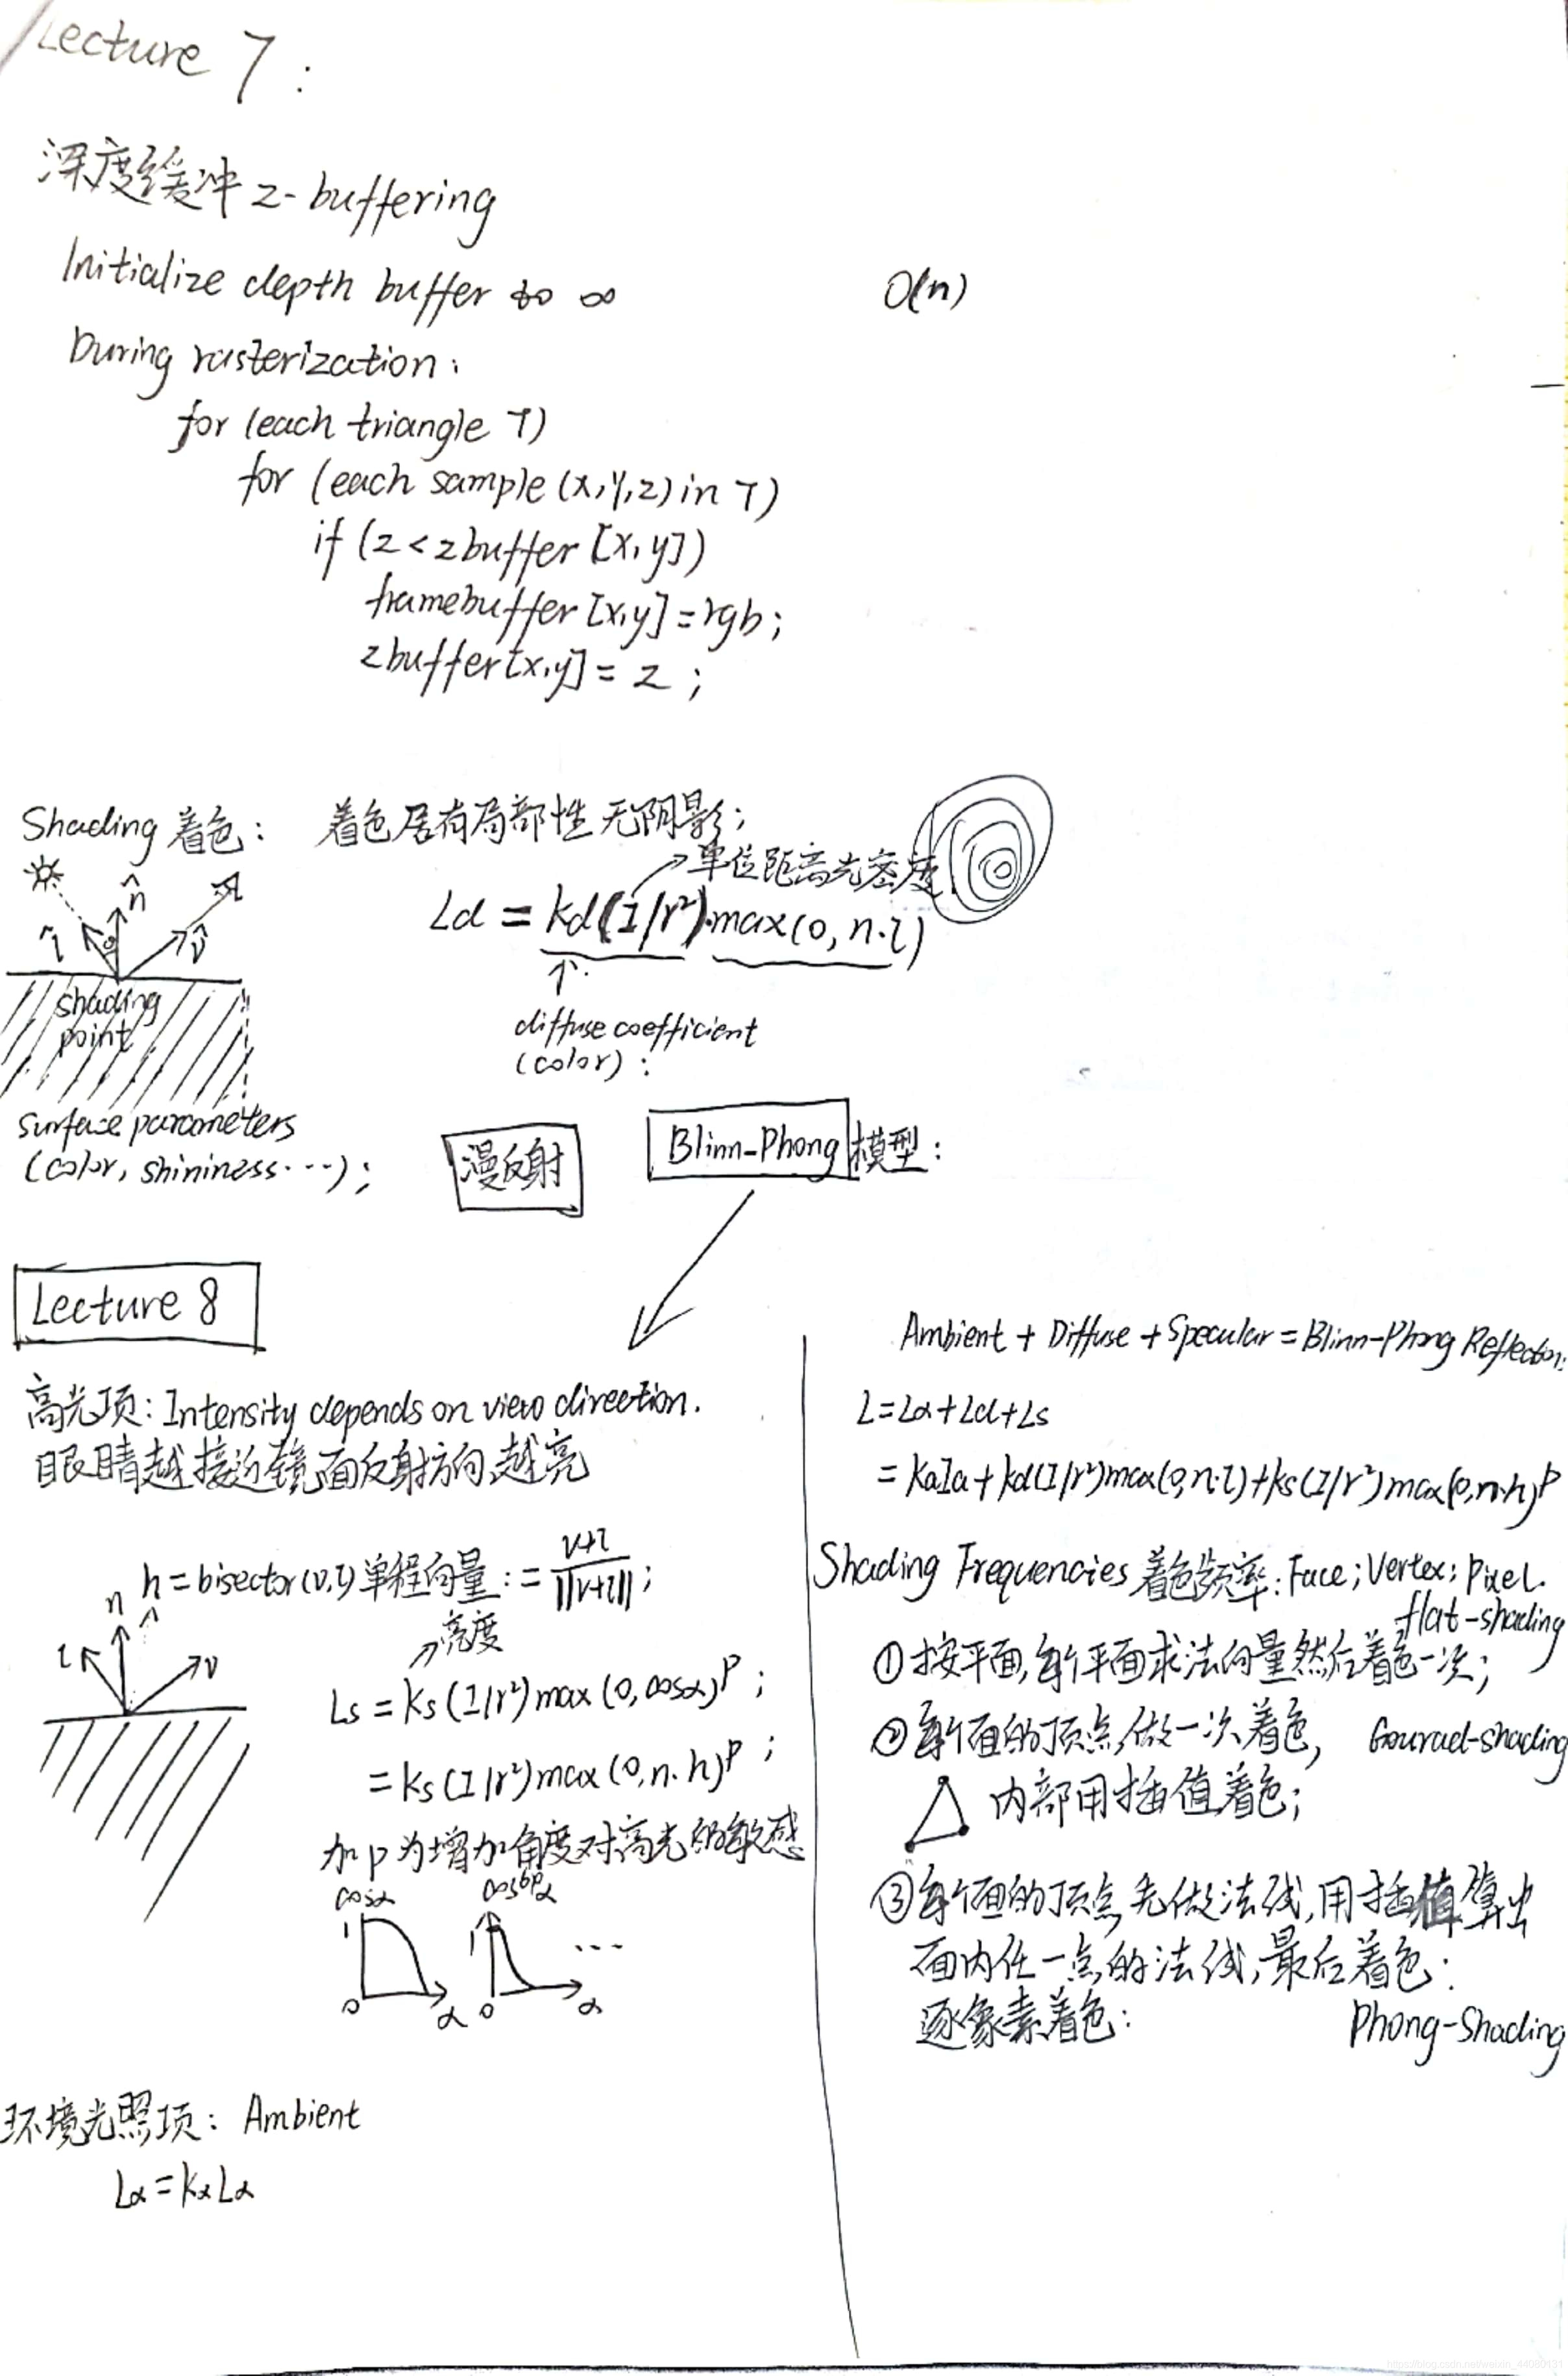 Lecture 7:
深度缓冲 z-buffering
Initialize depth buffer to ∞
O(n)
During rasterization:
for (each triangle T)
for (each sample (x,y,z) in T)
if (z < zbuffer [x, y])
framebuffer [x,y] = rgb;
zbuffer[x,y] = z ;
Shading 着色: 着色居有局部性 无阴影;
→单位距离光密度
Ld = kd(I/r²)·max(0, n·l)
n̂
l̂
v̂
shading
point
↑
diffuse coefficient
(color):
surface parameters
(color, shininess···);
漫反射
Blinn-Phong 模型:
Lecture 8
高光项: Intensity depends on view direction.
眼睛越接近镜面反射方向,越亮
h = bisector(v,l) 单程向量: = v+l / ||v+l|| ;
n
l
v
亮度
Ls = ks (I/r²) max (0, cosα)^p ;
= ks (I/r²) max (0, n·h)^p ;
加p为增加角度对高光的敏感
cosα
1
0
α
1
0
α
···
环境光照项: Ambient
Lα = kα Lα
Ambient + Diffuse + Specular = Blinn-Phong Reflection:
L = Lα + Ld + Ls
= kaIa + kd(I/r²)max(0,n·l) + ks(I/r²)max(0,n·h)^p
Shading Frequencies 着色频率: Face; Vertex; Pixel.
flat-shading
①按平面,每个平面求法向量然后着色一次;
②每个面的顶点,做一次着色, Gourud-shading
内部用插值着色;
③每个面的顶点先做法线,用插值算出
面内任一点的法线,最后着色:
逐像素着色: Phong-Shading